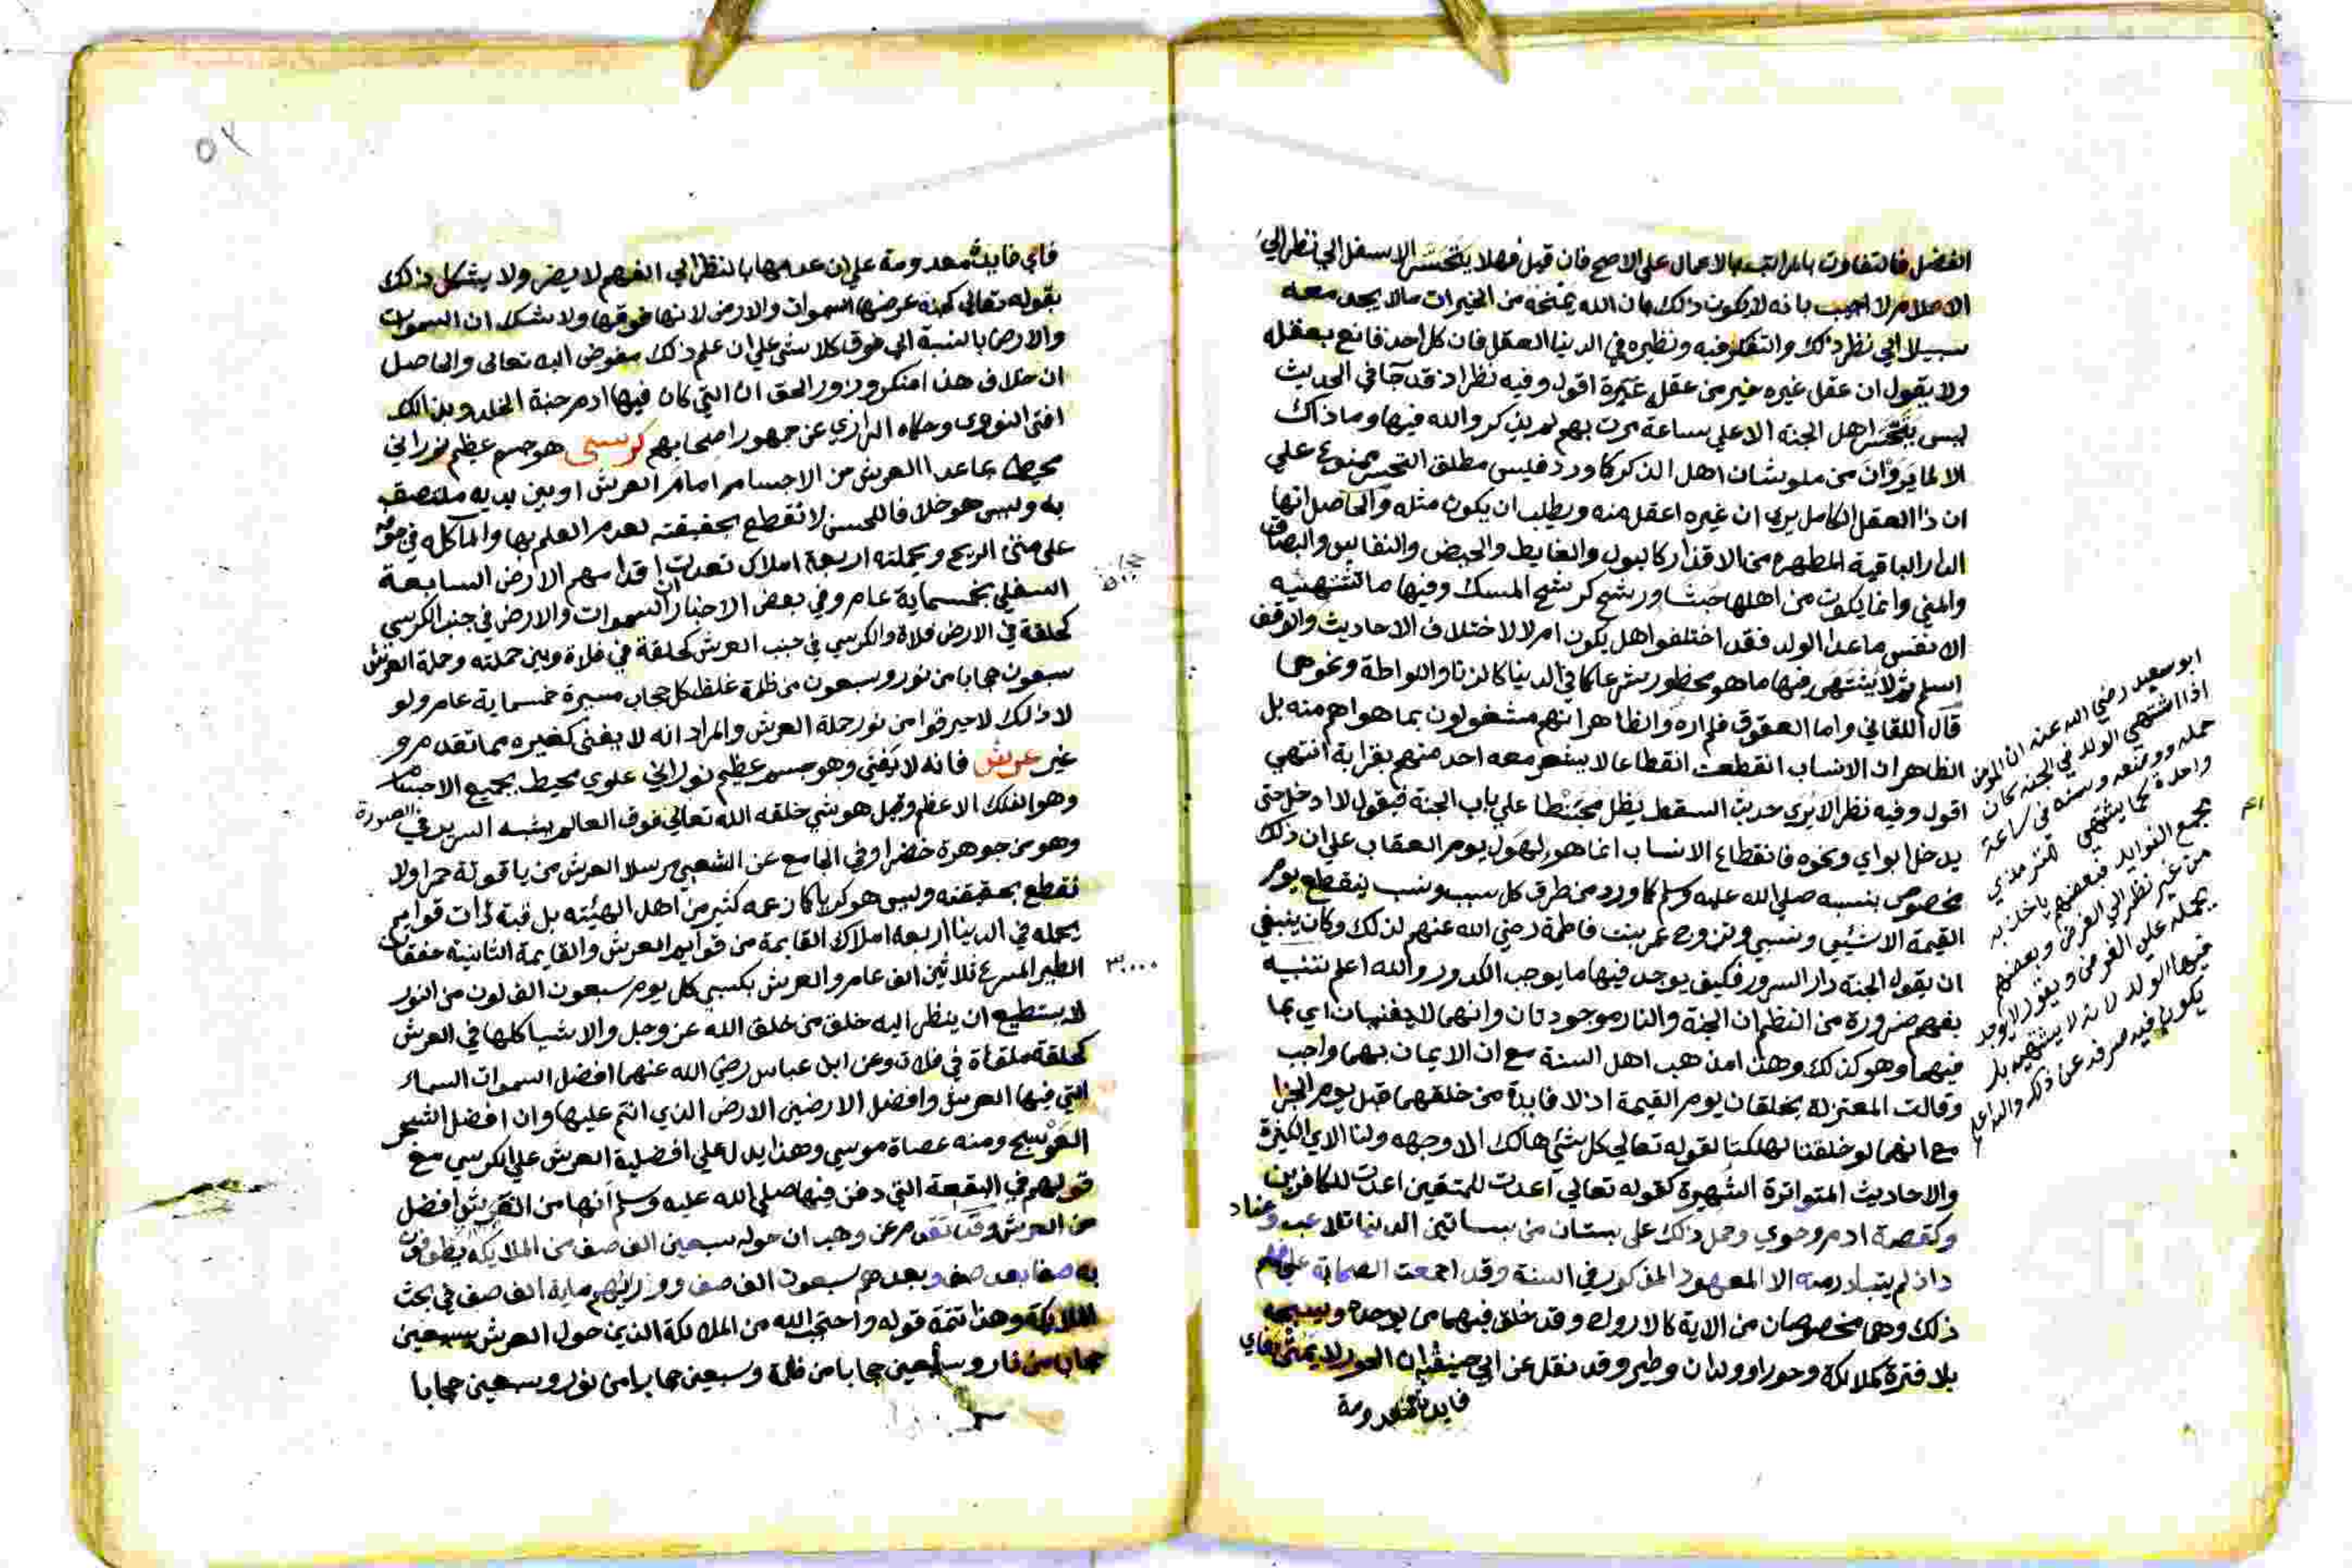 الفضل فالتفاوت بالمراتب بالاعمال علي الاصح فان قيل فهلا يتحسر الاسفل الي نظر الي
الاعلا ام لا اجيب بانه لا يكون ذلك فان الله يمنحه من الخيرات ما لا يجد معه
سبيلا الي نظر ذلك والتفكر فيه ونظيره في الدنيا العقل فان كل احد قانع بعقله
ولا يقول ان عقل غيره خير من عقله غيره اقول وفيه نظر اذ قد جآ في الحديث
ليس يتحسر اهل الجنة الا علي ساعة مرت بهم لم يذكروا الله فيها وما ذاك
الا لما يروان من علو شان اهل الذكر كما ورد فليس مطلق التحسر ممنوع علي
ان ذا العقل الكامل يري ان غيره اعقل منه ويطلب ان يكون مثله والحاصل انها
الدار الباقية المطهره من الاقذار كالبول والغايط والحيض والنفاس والبصاق
والمني وانما يكون من اهلها جشا ورشح كرشح المسك وفيها ما تشتهيه
الانفس ما عدا الولد فقد اختلفوا هل يكون ام لا لاختلاف الاحاديث والوقف
اسلم ثم لا يشتهى فيها ما هو محظور شرعا كما في الدنيا كالزنا واللواطة ونحوهما
قال اللقاني واما العقوق فلم اره والظاهر انهم مشغولون بما هو اهم منه بل
الظاهر ان الانساب انقطعت انقطاعا لا يشعر معه احد منهم بقرابة انتهي
اقول وفيه نظر الا يري حديث السقط يظل محبنطا علي باب الجنة فيقول لا ادخل حتى
يدخل ابواي ونحوه فانقطاع الانساب انما هو لهول يوم العقاب علي ان ذلك
مخصوص بنسبه صلي الله عليه وسلم كما ورد من طرق كل سبب ونسب ينقطع يوم
القيمة الا سببي ونسبي وتزوج عمر بنت فاطمة رضي الله عنهم لذلك وكان ينبغي
ان يقول الجنة دار السرور فكيف يوجد فيها ما يوجب الكدور والله اعلم تنبيه
يفهم ضرورة من النظم ان الجنة والنار موجودتان وانهما لا يفنيان اي بما
فيهما وهو كذلك وهذا مذهب اهل السنة مع ان الايمان بهما واجب
وقالت المعتزلة يخلقان يوم القيمة اذ لا فايدة من خلقهما قبل يوم الجزا
مع انهما لو خلقتا لهلكتا لقوله تعالي كل شئ هالك الا وجهه ولنا الاي الكثيرة
والاحاديث المتواترة الشهيرة كقوله تعالي اعدت للمتقين اعدت للكافرين
وكقصة ادم وحوي وحمل ذلك علي بستان من بساتين الدنيا تلاعب وعناد
اذ لم يتبادر منه الا المعهود المذكور في السنة وقد اجمعت الصحابة علي فهم
ذلك وهما مخصوصان من الاية كالارواح وقد خلق فيهما من يوحده ويسبحه
بلا فترة كملائكة وحور وولدان وطير وقد نقل عن ابي حنيفة ان الحور لا يمتن فاي
فايدة معدومة
ابو سعيد رضي الله عنه ان المومن
اذا اشتهي الولد في الجنة كان
حمله ووضعه وسنه في ساعة
واحدة كما يشتهي للترمذي
مجمع الفوايد فبعضهم ياخذ به
من غير نظر الي الفرض وبعضهم
يحمله علي الفرض ويقول لا يوجد
فيها الولد لانه لا يشتهيه بل
يكون فيه صرفه عن ذلك والله اعلم
٥٢
فاي فايدة معدومة علي ان عدمها بالنظر الي الفهم لا يضر ولا يشكل ذلك
بقوله تعالي كجنة عرضها السموات والارض لانها فوقها ولا شك ان السموات
والارض بالنسبة الي فوق كلا شي علي ان علم ذلك مفوض اليه تعالى والحاصل
ان خلاف هذا منكر وزور والحق ان التي كان فيها ادم جنة الخلد وبذالك
افتى النووي وحكاه الرازي عن جمهور اصحابهم كرسي هو جسم عظيم نوراني
محيط بما عدا العرش من الاجسام امام العرش او بين يديه ملتصق
به وليس هو خلافا للحسن لا نقطع بحقيقته لعدم العلم بها والما كله في جوفه
على متن الريح ويحمله اربعة املاك تعدت اقدامهم الارض السابعة
السفلي بخمسماية عام وفي بعض الاخبار ان السموات والارض في جنب الكرسي
كحلقة في الارض فلاة والكرسي في جنب العرش كحلقة في فلاة وبين حملته وحملة العرش
سبعون حجابا من نور وسبعون من ظلمة غلظ كل حجاب مسيرة خمسماية عام ولو
لا ذلك لاحترقوا من نور حملة العرش والمراد انه لا يفنى كغيره مما تقدم و
غير عرش فانه لا يفنى وهو جسم عظيم نوراني علوي محيط بجميع الاجسام
وهو الفلك الاعظم وقيل هو شي خلقه الله تعالي فوق العالم يشبه السرير في الصورة
وهو من جوهرة خضرا وفي الجامع عن الشعبي مرسلا العرش من ياقوتة حمرا ولا
نقطع بحقيقته وليس هو كريا كما زعمه كثير من اهل الهيئته بل قبة ذات قوايم
يحمله في الدنيا اربعة املاك القايمة من قوايم العرش والقايمة الثانية خفقان
الطير المسرع ثلاثين الف عام والعرش يكسي كل يوم سبعون الف لون من النور
لا يستطيع ان ينظر اليه خلق من خلق الله عز وجل والاشيا كلها في العرش
كحلقة ملقاة في فلاة وعن ابن عباس رضي الله عنهما افضل السموات السماء
التي فيها العرش وافضل الارضين الارض الذي انتم عليها وان افضل الشجر
العوسج ومنه عصاة موسي وهذا يدل علي افضلية العرش علي الكرسي مع
قولهم في البقعة التي دفن فيها صلي الله عليه وسلم انها من افضل
من العرش وقد تقدم عن وهب ان حوله سبعين الف صف من الملايكة يطوفون
به صفا بعد صف وبعدهم سبعون الف صف ووراءهم ماية الف صف في بحث
الملايكة وهذا تتمة قوله واحتجب الله من الملائكة الذين حول العرش بسبعين
حجابا من نار وسبعين حجابا من ظلمة وسبعين حجابا من نور وسبعين حجابا
٣٠٠٠٠